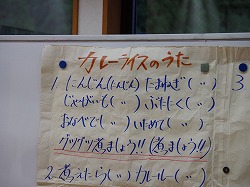 カレーライスのうた
1. にんじん(にんじん) たまねぎ(〃)
じゃがいも(〃) ぶたにく(〃)
おなべで(〃) いためて(〃)
グツグツ煮ましょう!!(煮ましょう!!)
2. 煮えたら(〃) カレールー(〃)
3